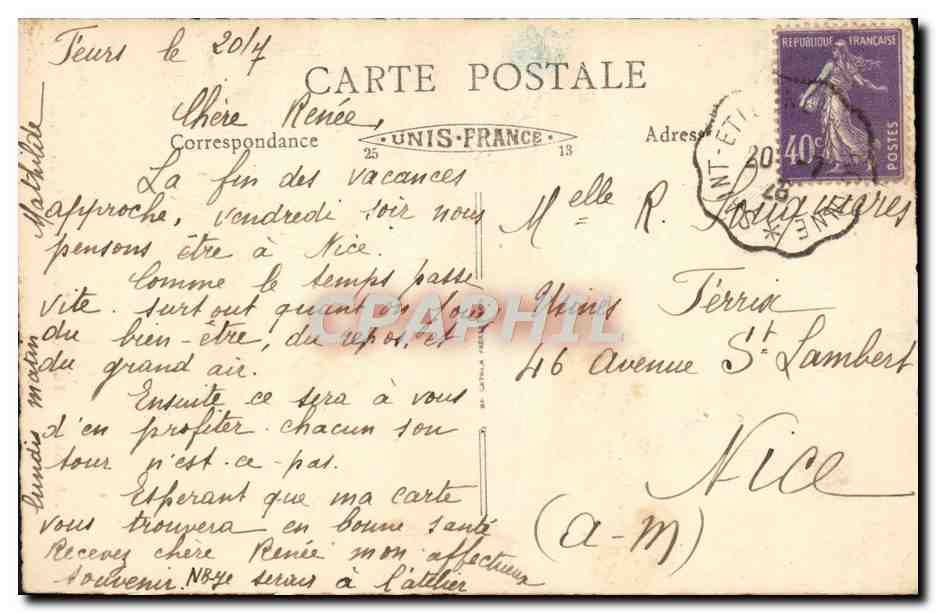 Feurs le 20/7
CARTE POSTALE
Chère Renée,
Correspondance
UNIS-FRANCE
25
13
Adresse
La fin des vacances
approche, vendredi soir nous
pensons être à Nice.
Comme le temps passe
vite. surtout quant on joui
du bien-être, du repos, et
du grand air.
Ensuite ce sera à vous
d'en profiter chacun son
tour n'est-ce-pas.
Esperant que ma carte
vous trouvera en bonne santé
Recevez chère Renée mon affectueux
souvenir. NB je serais à l'atelier
lundis matin Mathilde
REPUBLIQUE FRANÇAISE
40c
POSTES
20 -7
28
Melle R.
Usines Férrix
46 Avenue St Lambert
Nice
(a-M)
CPAPHIL